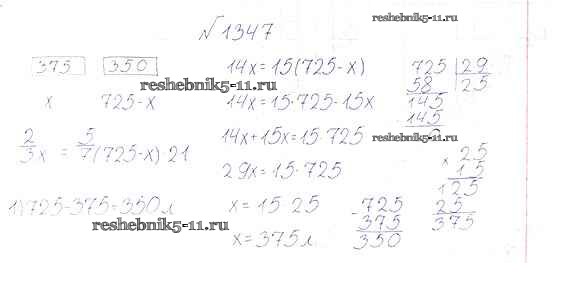 №1347
www.reshebnik5-11.ru
375 350
x 725-x
2/3x = 5/7(725-x)·21
1)725-375=350л
www.reshebnik5-11.ru
reshebnik5-11.ru
14x=15(725-x)
14x=15·725-15x
14x+15x=15·725
29x=15·725
x=15·25
x=375л
725 29
58 25
145
145
0
www.reshebnik5-11.ru
× 25
15
125
25
375
- 725
375
350